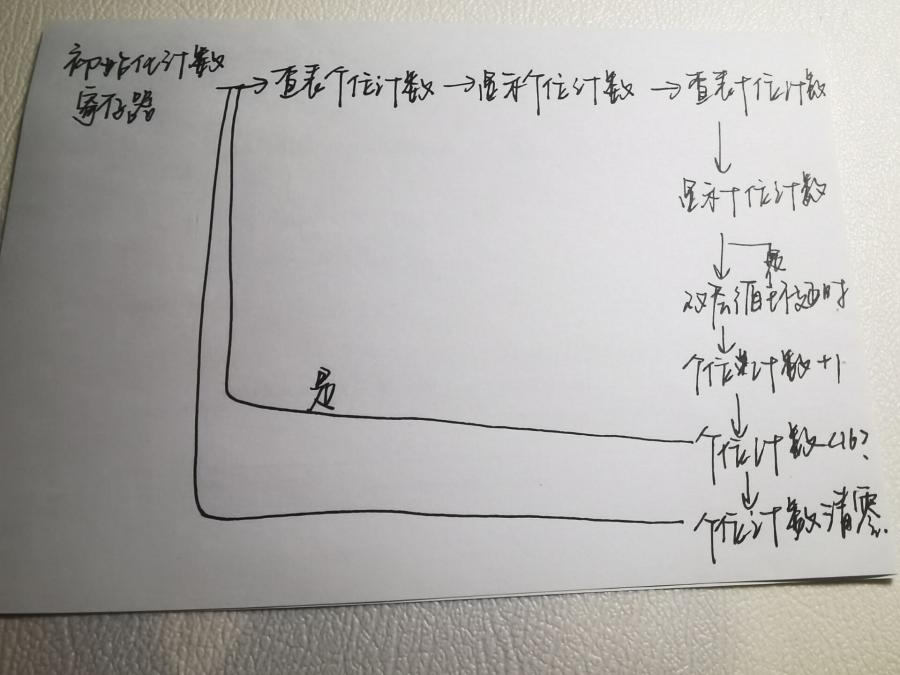 初始化计数
寄存器
→查表个位计数→显示个位计数→查表十位计数
显示十位计数
是
双层循环延时
个位计数+1
个位计数<16?
是
个位计数清零